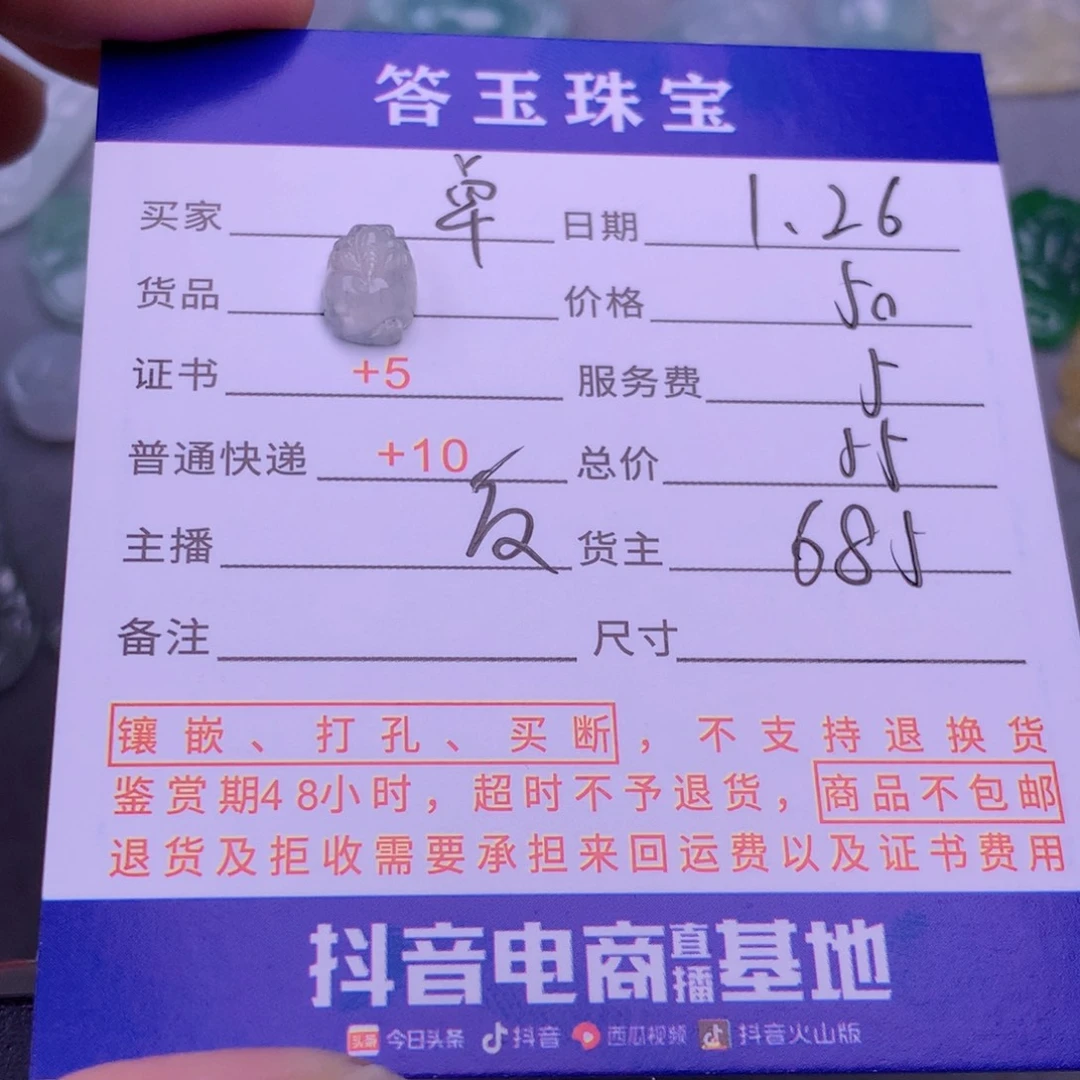 答玉珠宝
买家 卓 日期 1.26
货品 价格 50
证书 +5 服务费 5
普通快递 +10 总价 55
主播 货主 685
备注 尺寸
镶嵌、打孔、买断，不支持退换货
鉴赏期48小时，超时不予退货，商品不包邮
退货及拒收需要承担来回运费以及证书费用
抖音电商直播基地
头条 今日头条 抖音 西瓜视频 抖音火山版